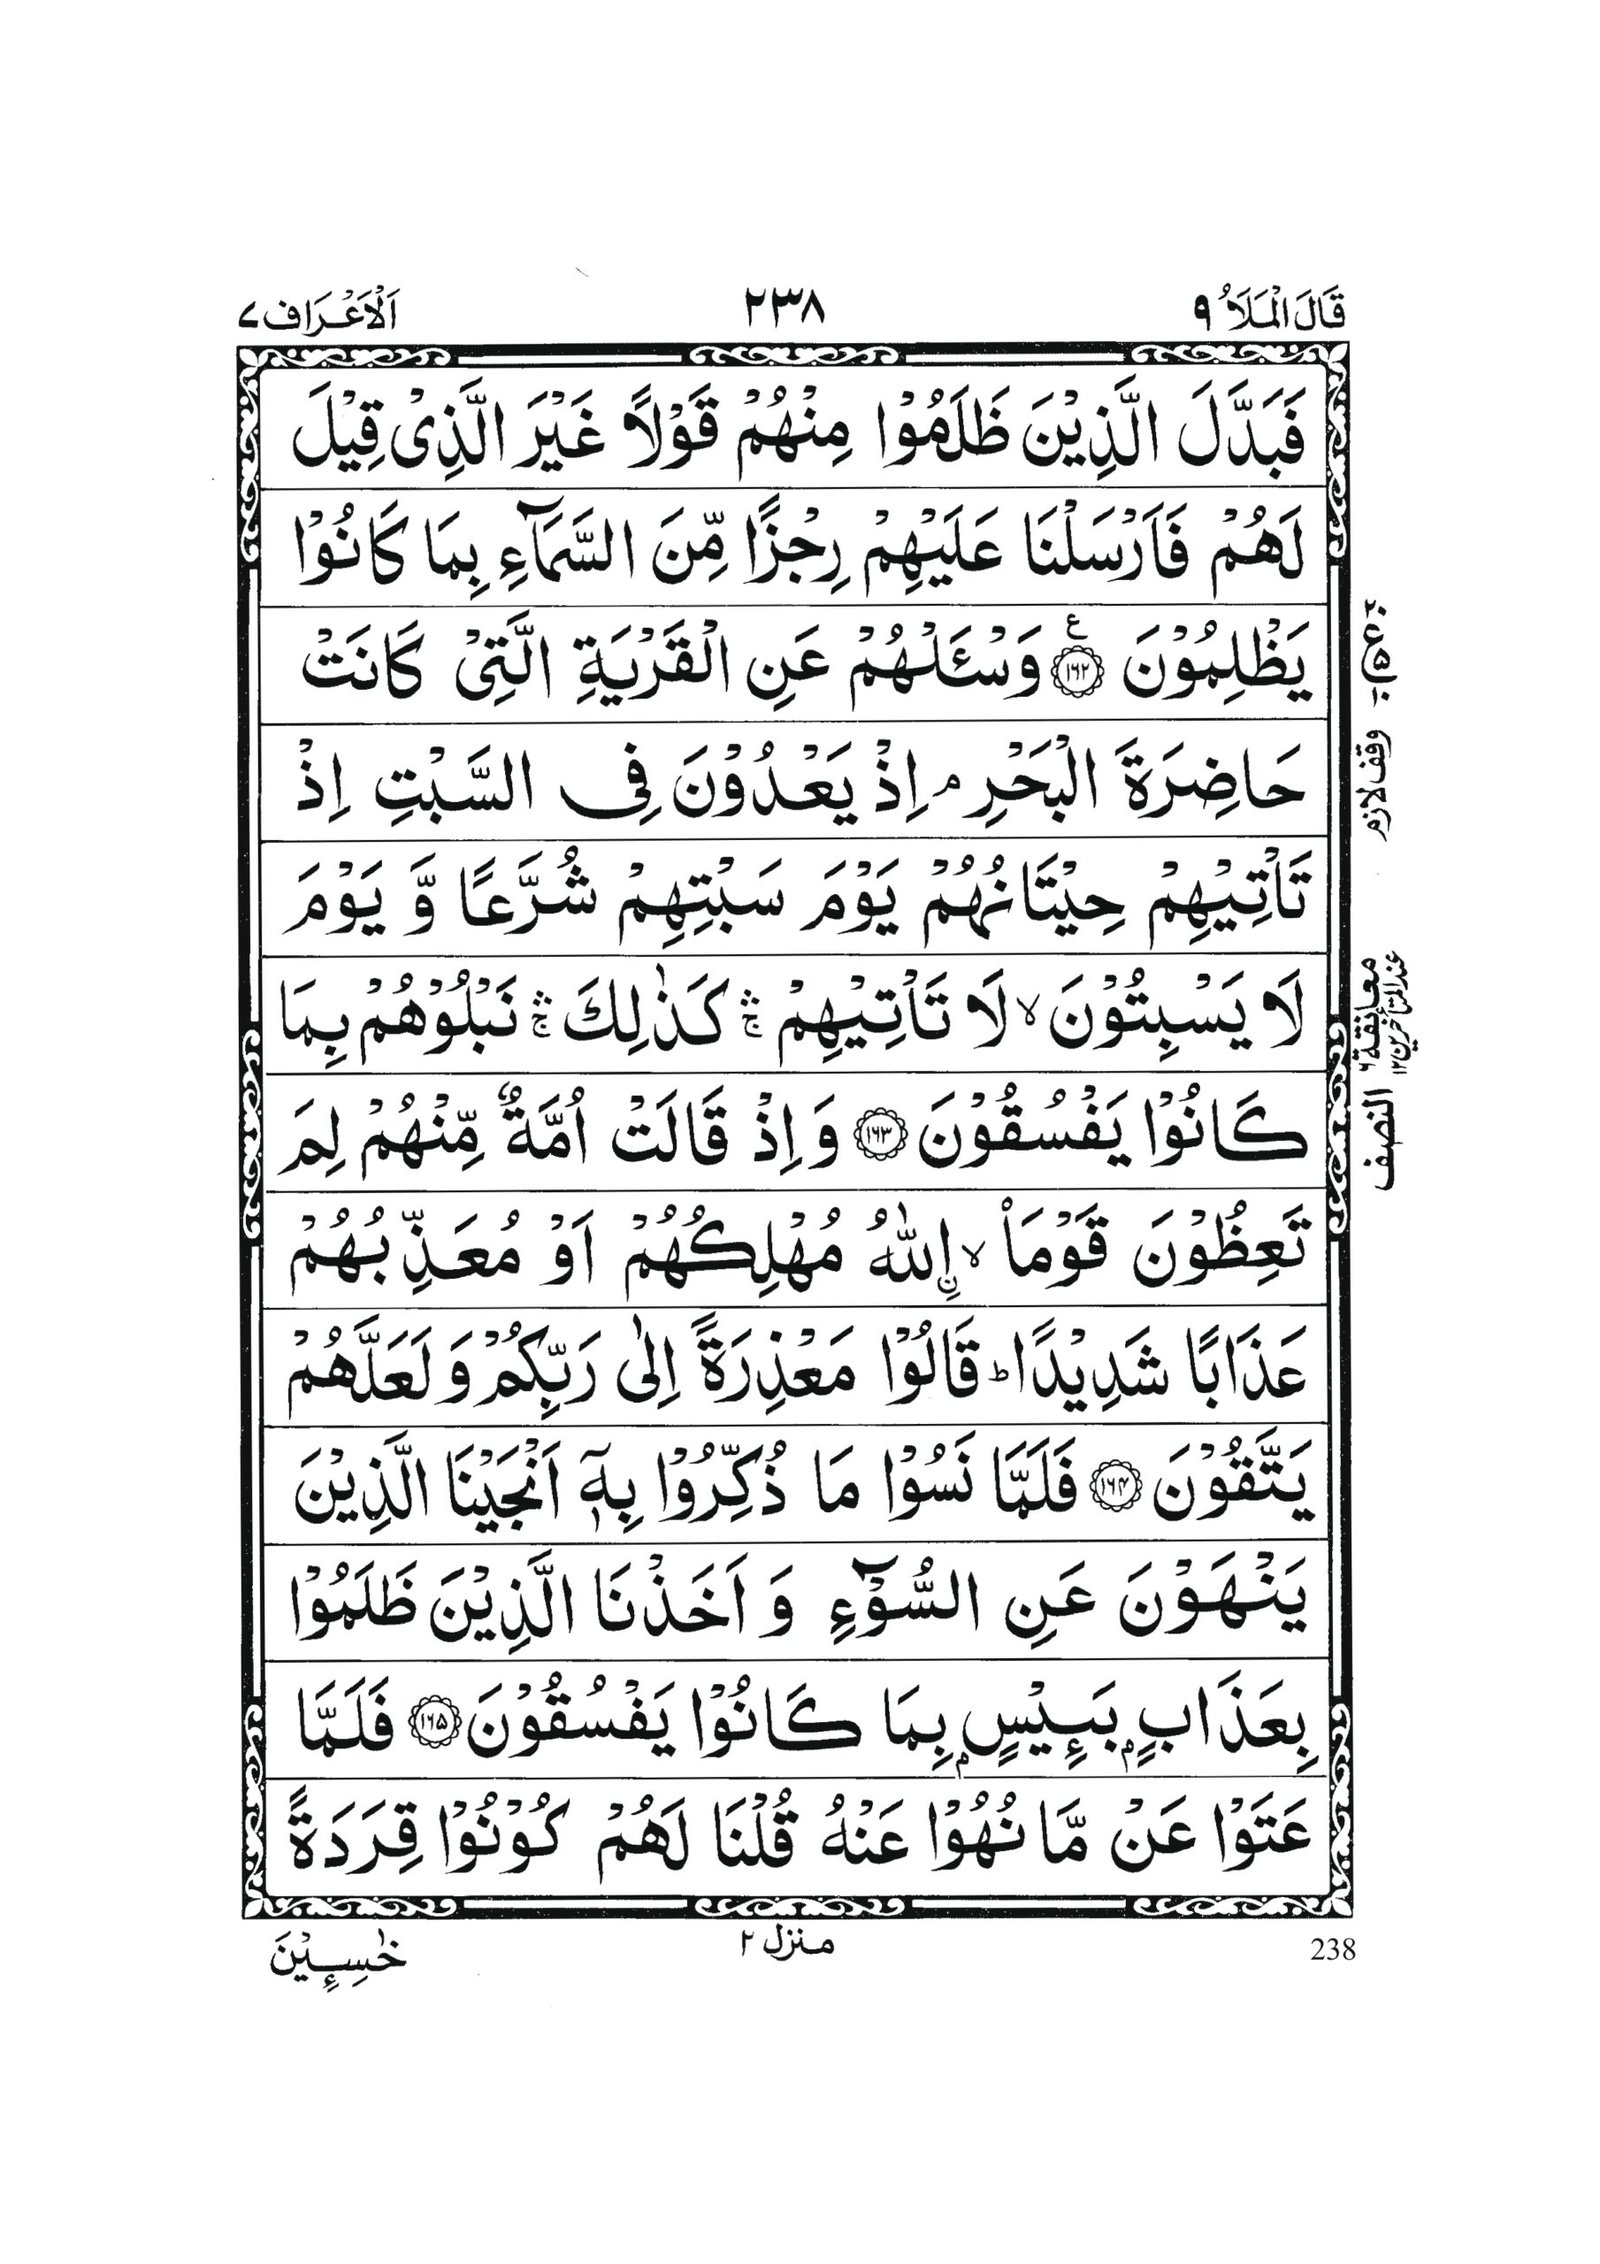 قَالَ الْمَلَاُ ٩ ٢٣٨ اَلْاَعْرَاف ٧
فَبَدَّلَ الَّذِيْنَ ظَلَمُوْا مِنْهُمْ قَوْلًا غَيْرَ الَّذِيْ قِيْلَ
لَهُمْ فَاَرْسَلْنَا عَلَيْهِمْ رِجْزًا مِّنَ السَّمَآءِ بِمَا كَانُوْا
يَظْلِمُوْنَ ۧ ﴿١٦٢﴾ وَسْـَٔلْهُمْ عَنِ الْقَرْيَةِ الَّتِيْ كَانَتْ
حَاضِرَةَ الْبَحْرِ ۘ اِذْ يَعْدُوْنَ فِى السَّبْتِ اِذْ
تَاْتِيْهِمْ حِيْتَانُهُمْ يَوْمَ سَبْتِهِمْ شُرَّعًا وَّ يَوْمَ
لَا يَسْبِتُوْنَ ۙ لَا تَاْتِيْهِمْ ۛۚ كَذٰلِكَ ۛۚ نَبْلُوْهُمْ بِمَا
كَانُوْا يَفْسُقُوْنَ ﴿١٦٣﴾ وَ اِذْ قَالَتْ اُمَّةٌ مِّنْهُمْ لِمَ
تَعِظُوْنَ قَوْمَاْ ۙ اِۨللّٰهُ مُهْلِكُهُمْ اَوْ مُعَذِّبُهُمْ
عَذَابًا شَدِيْدًا ؕ قَالُوْا مَعْذِرَةً اِلٰى رَبِّكُمْ وَ لَعَلَّهُمْ
يَتَّقُوْنَ ﴿١٦٤﴾ فَلَمَّا نَسُوْا مَا ذُكِّرُوْا بِهٖۤ اَنْجَيْنَا الَّذِيْنَ
يَنْهَوْنَ عَنِ السُّوْٓءِ وَ اَخَذْنَا الَّذِيْنَ ظَلَمُوْا
بِعَذَابٍۭ بَـِٔيْسٍۭ بِمَا كَانُوْا يَفْسُقُوْنَ ﴿١٦٥﴾ فَلَمَّا
عَتَوْا عَنْ مَّا نُهُوْا عَنْهُ قُلْنَا لَهُمْ كُوْنُوْا قِرَدَةً
238 منزل ٢ خٰسِـِٕيْنَ
وقف لازم
معانقة ٦
عند المتأخرين ١٢
النصف